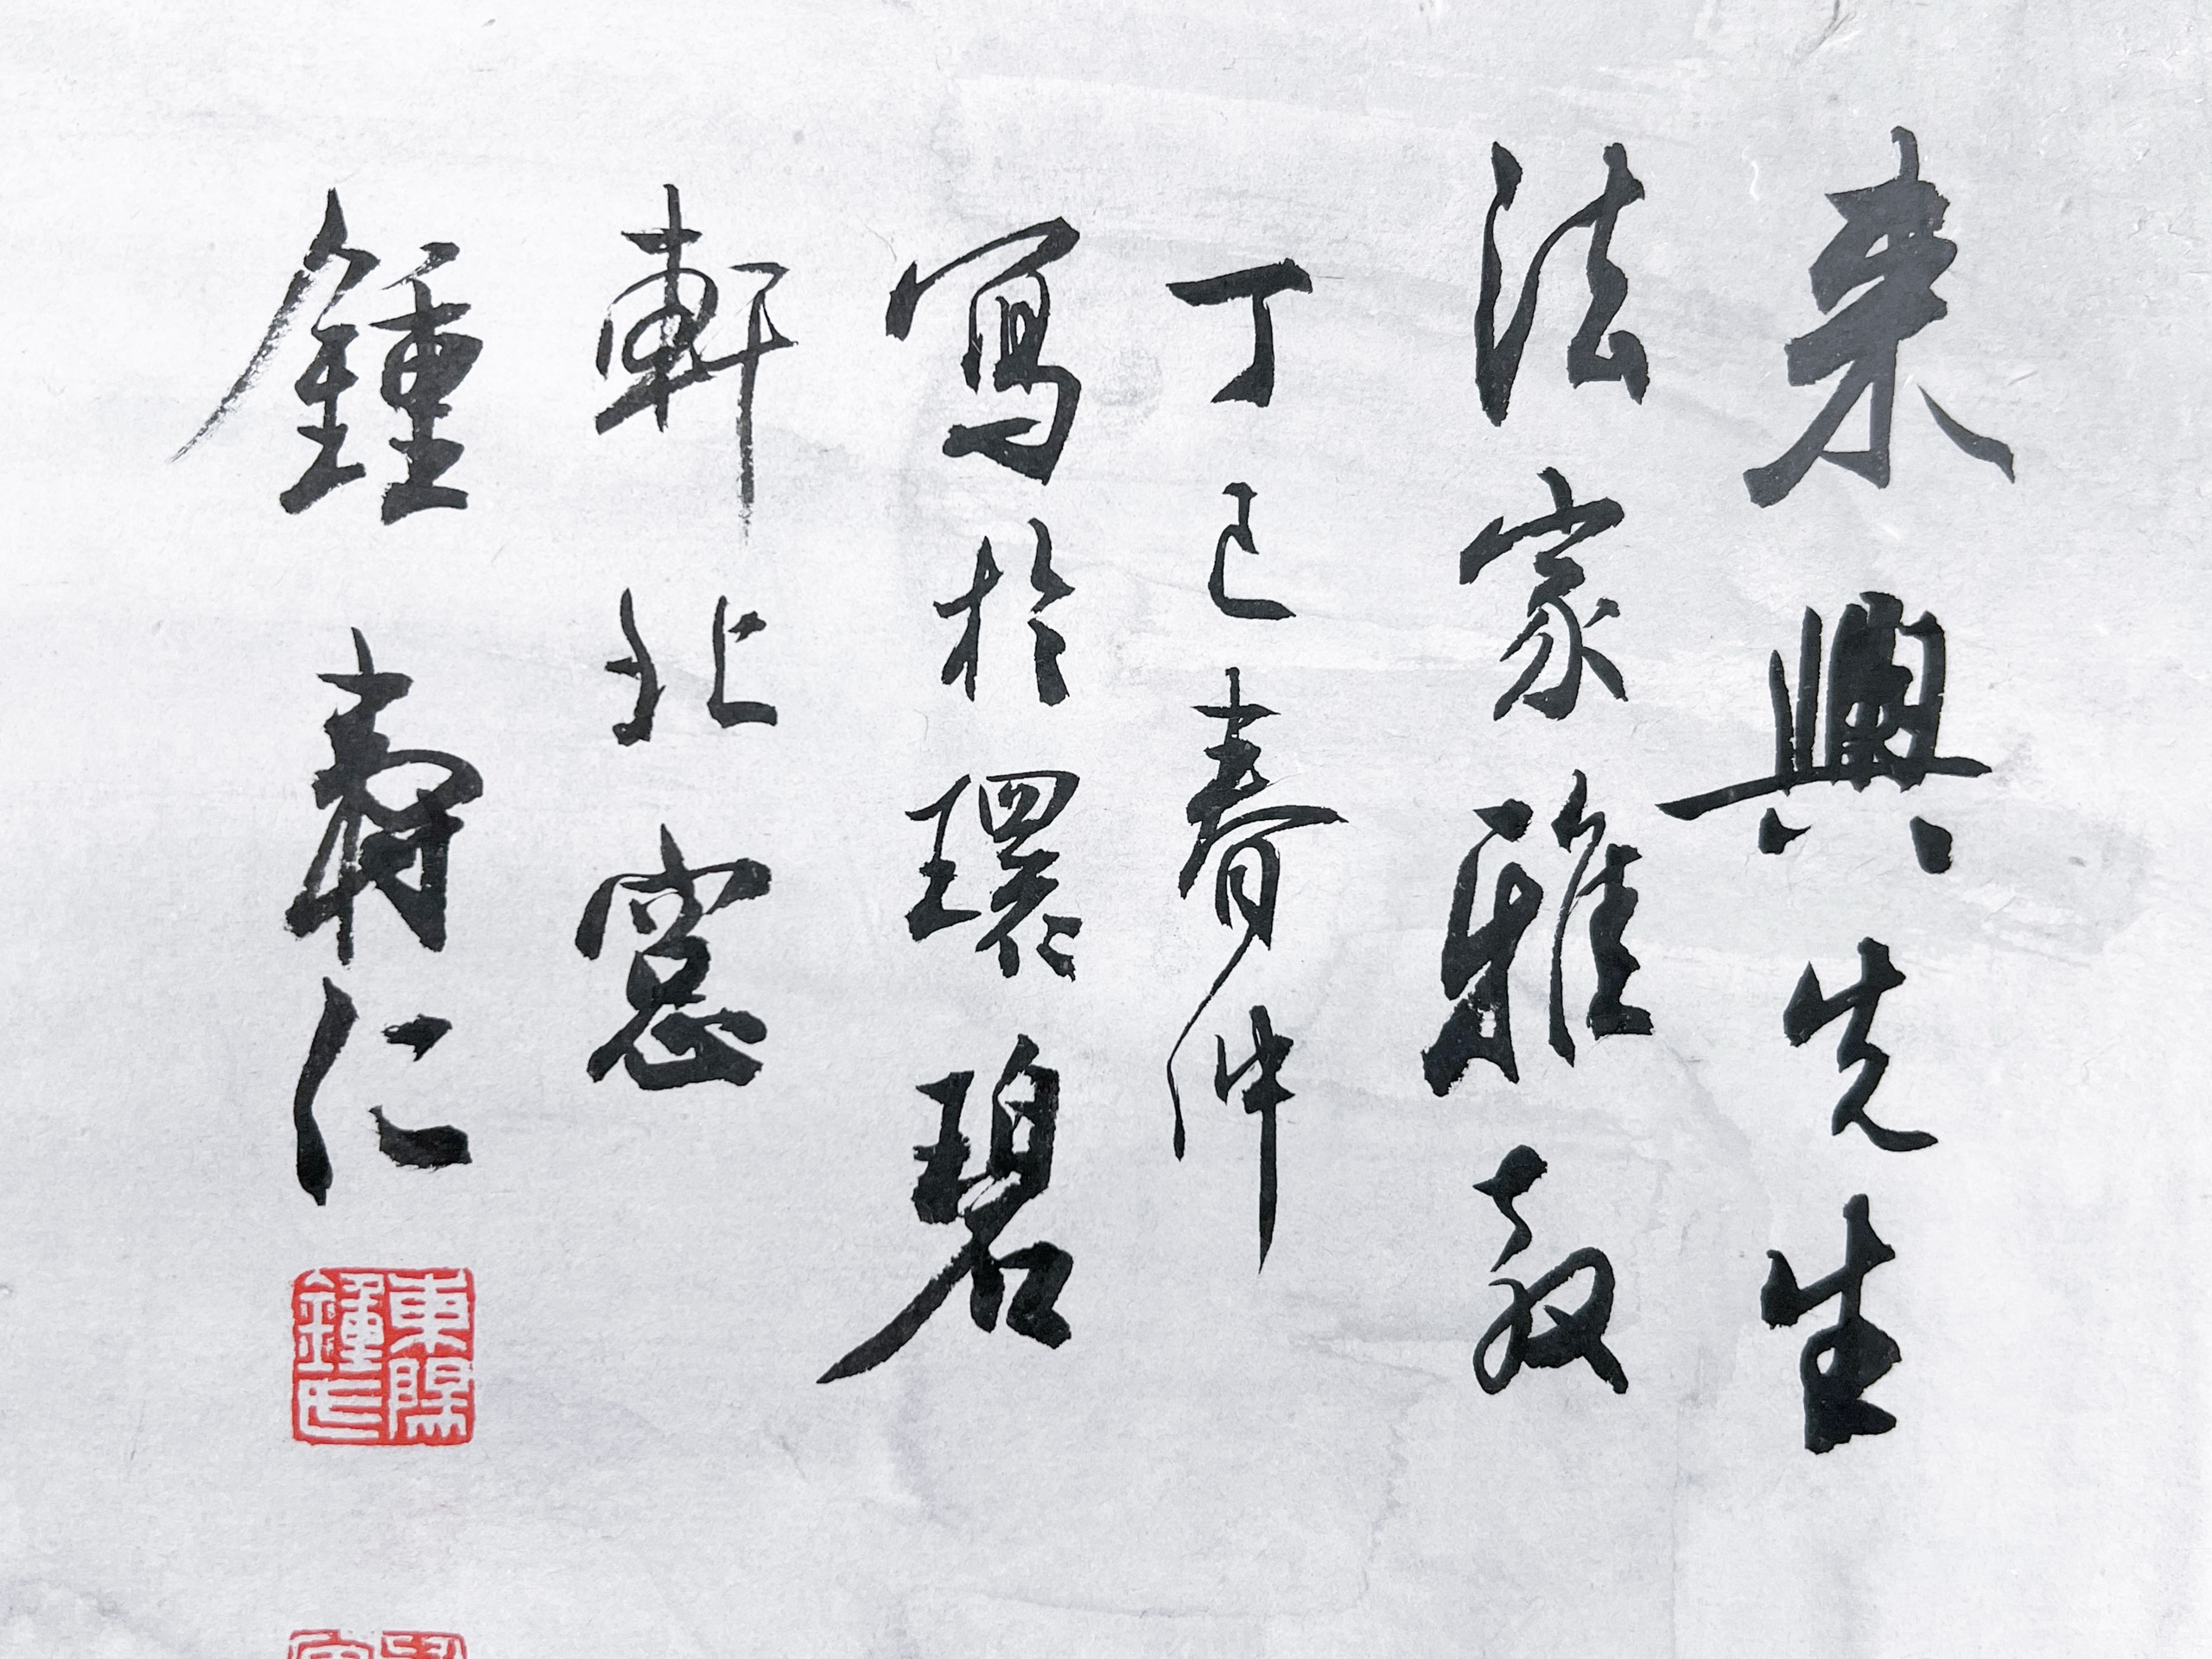 来興先生
法家雅教
丁巳春仲
寫於環碧
軒北窻
鍾壽仁
東陽
鍾氏